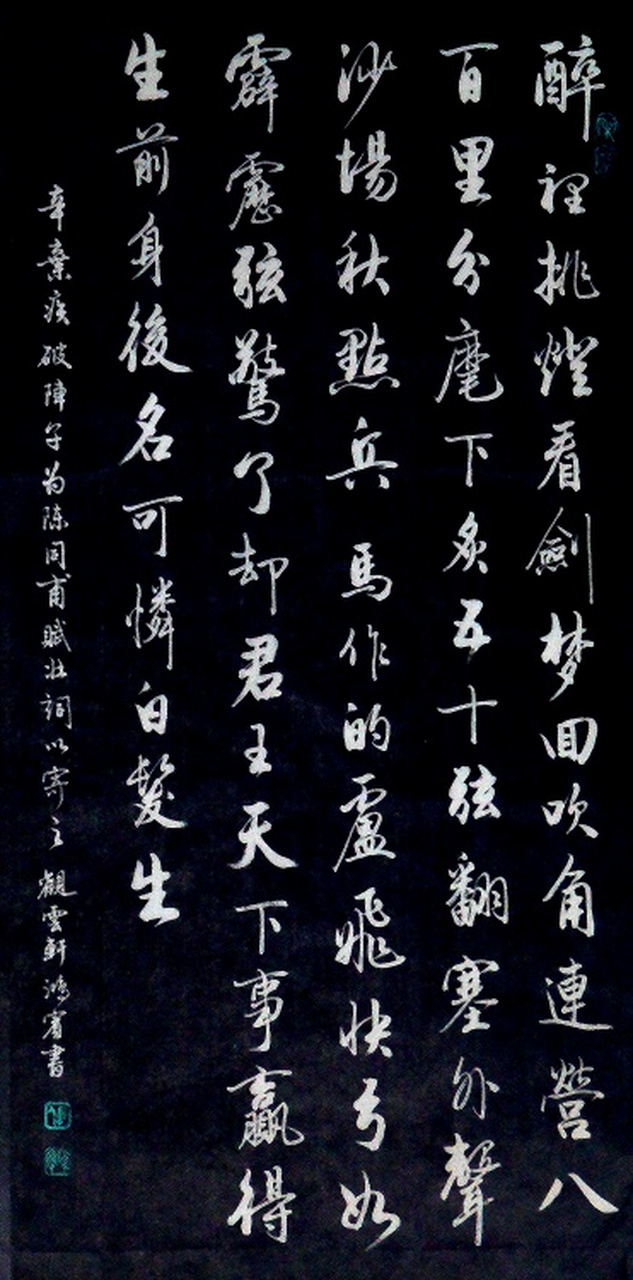 醉裡挑燈看劍梦回吹角連營八
百里分麾下炙五十弦翻塞外聲
沙場秋點兵馬作的盧飛快弓如
霹靂弦驚了却君王天下事贏得
生前身後名可憐白髮生
辛棄疾破陣子为陈同甫賦壯詞以寄之觀雲軒鴻賓書